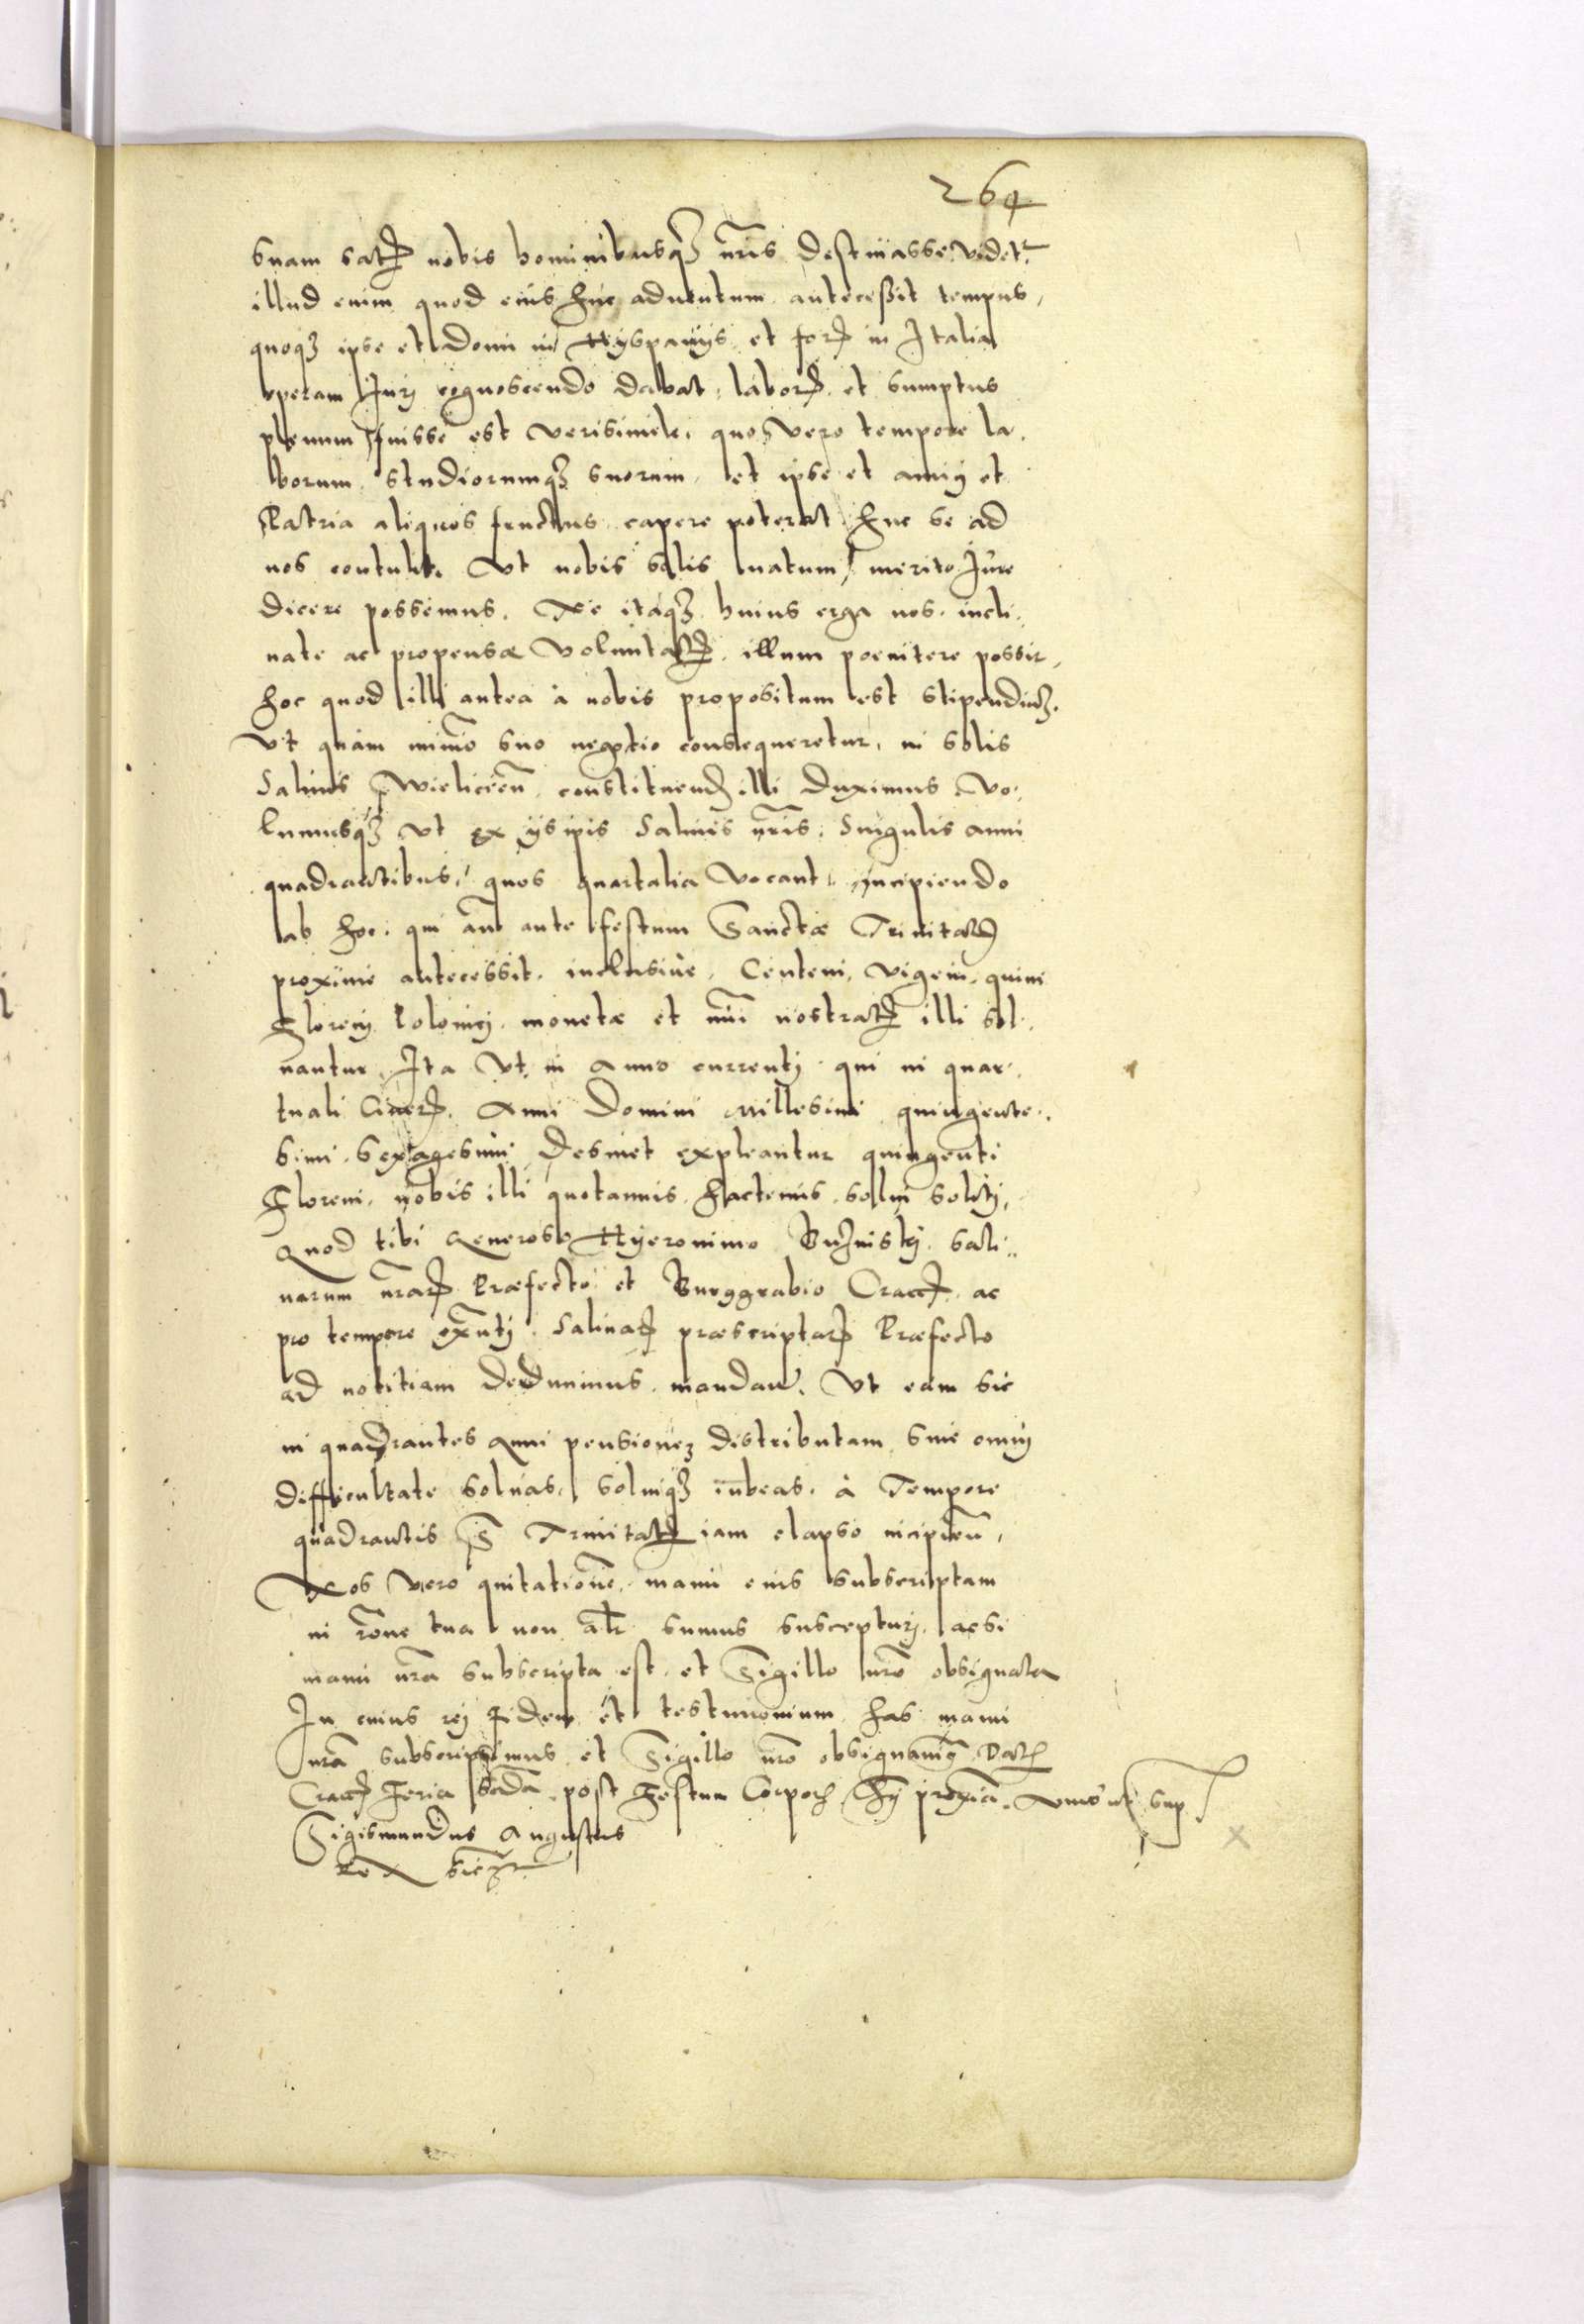 264
suam satis nobis hominibusq; nris destinasse videt.
illud enim quod eius huc aduentum antecessit tempus,
quoq; ipse et domi in Hyspanijs et foris in Italia
operam Iuri cognoscendo dabat, laboris et sumptus
plenum fuisse est verisimile, quo vero tempore la,
borum studiorumq; suorum et ipse et amici et
Patria aliquos fructus capere poterat huc se ad
nos contulit. Vt nobis solis natum merito Iure
dicere possemus. Ne itaq; huius erga nos incli,,
nate ac propensæ voluntatis illum poenitere possit,
hoc quod illi antea à nobis propositum est stipendiu,
Vt quàm minio suo negotio consequeretur, in solis
Salinis Wielicien constituend illi duximus Vo,
lumusq; vt ex ijs ipis Salinis nris, Singulis anni
quadrantibus, quos quartalia vocant, incipiendo
ab hoc, qui ante festum Sanctæ Trinitatis
proxime antecessit, inclusiue, Centeni, vigeni, quini
Floreni Polonici monetæ et nri nostratis illi sol,
uantur, Ita vt in anno currenti qui in quar,
tuali Cineris Anni Domini Millesimi quingente,,
simi sexagesimi desinet expleantur quingenti
Floreni, nobis illi quotannis hactenus solui soliti,
Quod tibi Generoso Hyeronimo Buzniski Sali,,
narum nrarum Præfecto et Burggrabio Craccij ac
pro tempore exnti Salinarum præscriptarum Præfecto
ad notitiam deducimus mandam. Vt eam sic
in quadrantes Anni pensione distributam sine omni
difficultate soluas, soluiq; iubeas, à Tempore
quadrantis S Trinitatis iam elapso incipien,
Nos vero quitatione manu eius subscriptam
in rone tua non alr sumus suscepturi, acsi
manu nra subscripta est et Sigillo nro obsignata
In cuius rei fidem et testimonium has manu
nra subscripsimus et Sigillo nro obsignauim9 Dat
Cracc Feria Scda post Festum Corporis Chri proxia. Anno ut sup
Sigismundus Augustus
Rex sscr